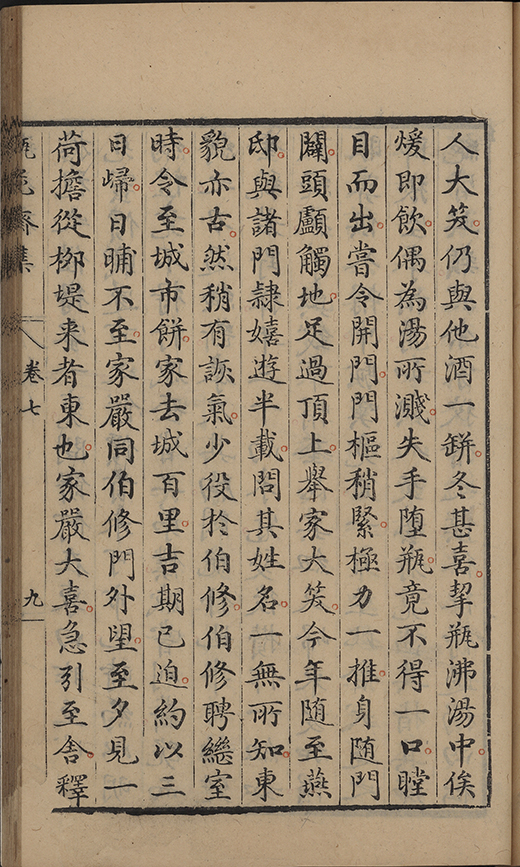 人大笑仍與他酒一缾冬甚喜挈瓶沸湯中俟
煖即飲偶為湯所濺失手堕瓶竟不得一口瞠
目而出嘗令開門門樞稍緊極力一推身随門
闢頭顱觸地足過頂上舉家大笑今年随至燕
邸與諸門隷嬉遊半載問其姓名一無所知東
貌亦古然稍有詼氣少役於伯修伯修聘繼室
時令至城市餅家去城百里吉期已迫約以三
日歸日晡不至家嚴同伯修門外望至夕見一
荷擔從柳堤来者東也家嚴大喜急引至舎釋
瓶花齋集
卷七
九